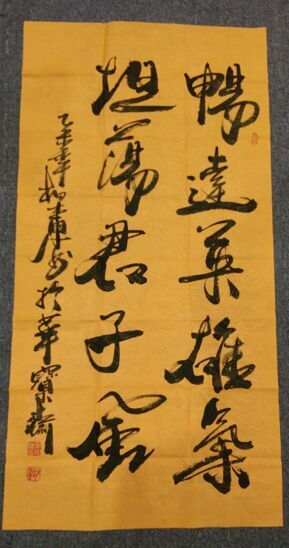 暢達英雄氣
坦蕩君子風
乙未年柳庸书於華寶齋